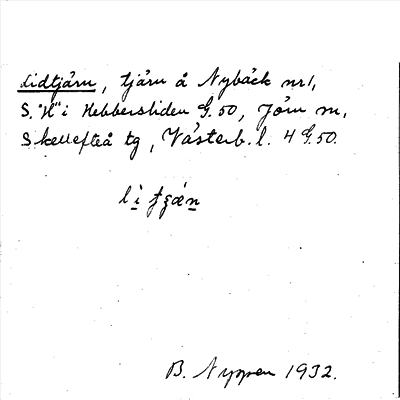 Lidtjärn, tjärn å Nybäck nr 1,
S. "H" i Hebbersliden G. 50, Jörn sn,
Skellefteå tg, Västerb. l. 4 G. 50.
B. Nyman 1932.